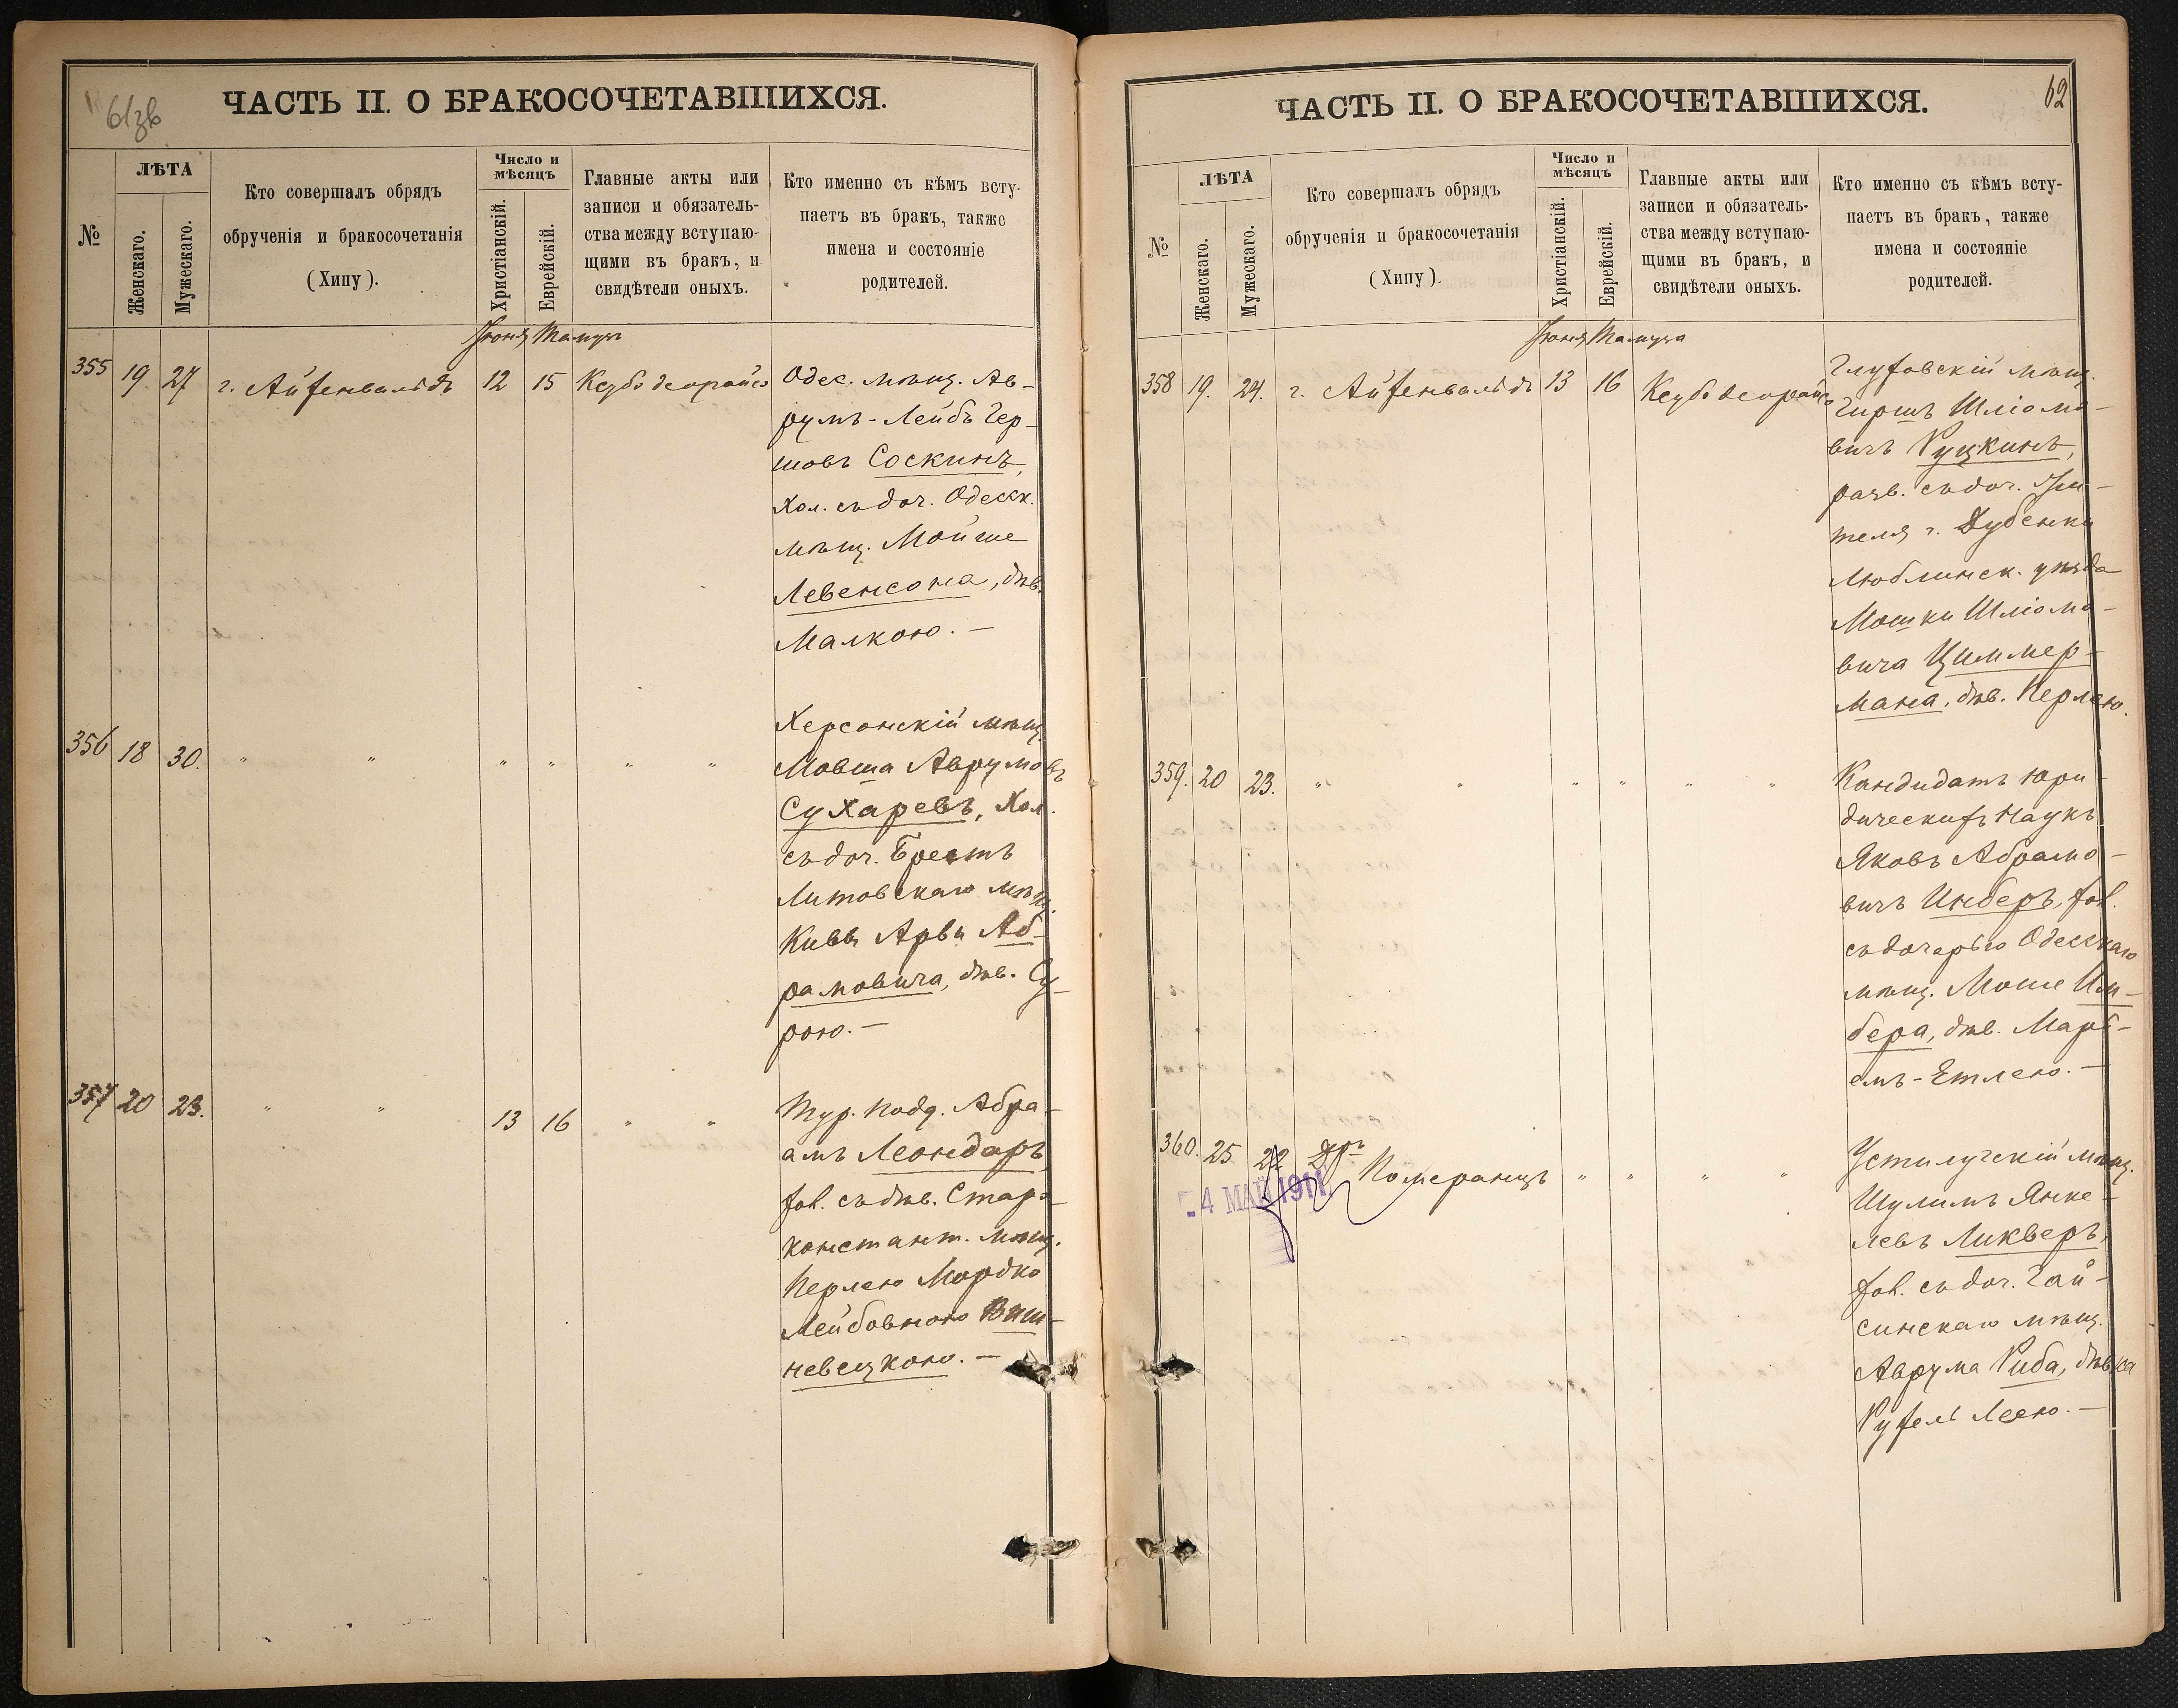 61зв
ЧАСТЬ II. О БРАКОСОЧЕТАВШИХСЯ.
№
ЛѢТА
Женскаго.
Мужескаго.
Кто совершалъ обрядъ
обрученія и бракосочетанія
(Хипу).
Число и
мѣсяцъ
Христіанскій.
Еврейскій.
Главные акты или
записи и обязатель-
ства между вступаю-
щими въ бракъ, и
свидѣтели оныхъ.
Кто именно съ кѣмъ всту-
паетъ въ бракъ, также
имена и состояніе
родителей.
Іюня Тамуза
355 19. 27 г. Айхенвальдъ 12 15 Кезбо деорайсо
Одес. мѣщ. Ав-
румъ-Лейбъ Гер-
шовъ Соскинъ,
хол. съ доч. Одесск.
мѣщ. Мойше
Левенсона, дѣв.
Малкою. —
356 18 30. " " " " " "
Херсонскій мѣщ.
Мовша Аврумовъ
Сухаревъ, хол.
съ доч. Брестъ
Литовскаго мѣщ.
Кивы Арви Аб-
рамовича, дѣв. Су-
рою. —
357 20 23. " " 13 16 " "
Тур. подд. Абра-
амъ Леондаръ,
хол. съ дѣв. Старо-
констант. мѣщ.
Перлею Мордко
Лейбовною Виш-
невецкою. —
62
ЧАСТЬ II. О БРАКОСОЧЕТАВШИХСЯ.
№
ЛѢТА
Женскаго.
Мужескаго.
Кто совершалъ обрядъ
обрученія и бракосочетанія
(Хипу).
Число и
мѣсяцъ
Христіанскій.
Еврейскій.
Главные акты или
записи и обязатель-
ства между вступаю-
щими въ бракъ, и
свидѣтели оныхъ.
Кто именно съ кѣмъ всту-
паетъ въ бракъ, также
имена и состояніе
родителей.
Іюня Тамуза
358 19. 24. г. Айхенвальдъ 13 16 Кезбо деорайсо
Глуховскій мѣщ.
Гиршъ Шліомо-
вичъ Руцкинъ,
разв. съ доч. жи-
теля г. Дубенки
Люблинск. уѣзда
Мошки Шліомо-
вича Циммер-
мана, дѣв. Перлею.
359. 20 23. " " " " " "
Кандидатъ Юри-
дическихъ Наукъ
Яковъ Абрамо-
вичъ Инберъ, хол.
съ дочерью Одесскаго
мѣщ. Моше Им-
бера, дѣв. Марь-
емъ-Етлею. —
360. 25 22 Дръ Померанцъ " " " "
4 МАЙ 1911
Устилугскій мѣщ.
Шулимъ Янке-
левъ Ликверъ,
хол. съ доч. Гай-
синскаго мѣщ.
Аврума Риба, дѣвка
Рухель Леею. —